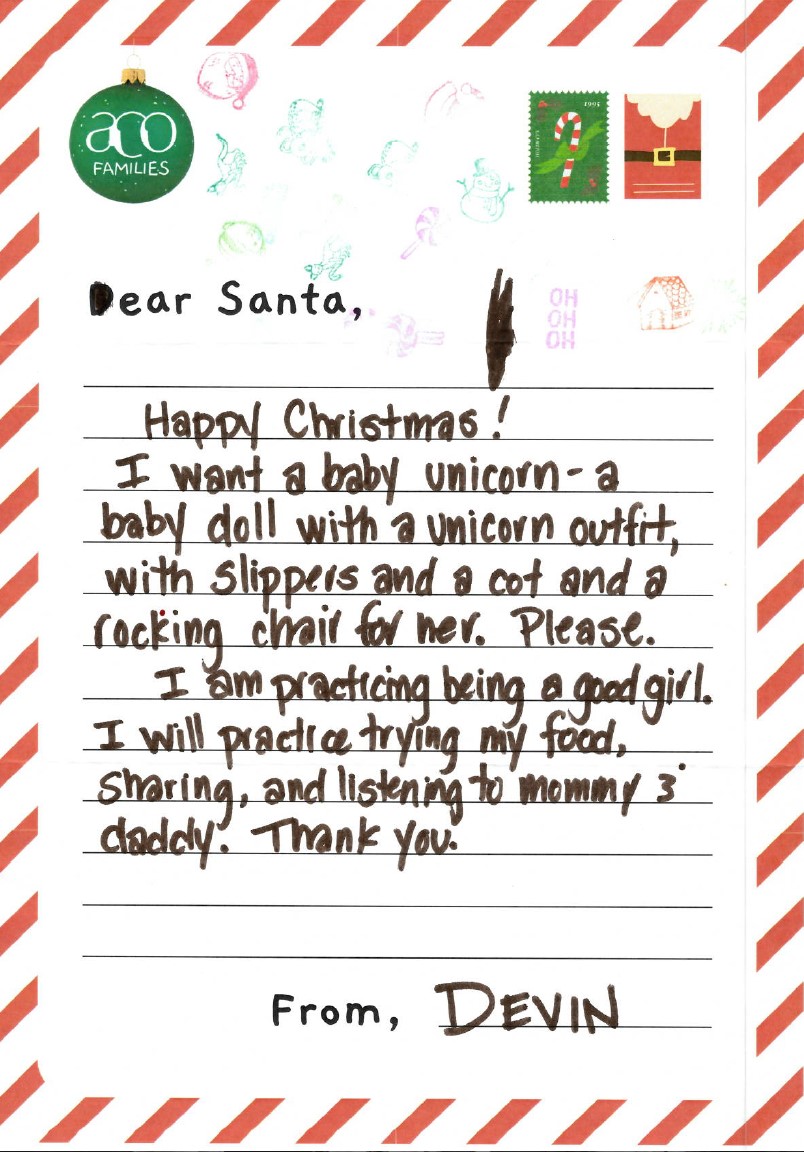 aco
FAMILIES
1995
Dear Santa,
OH
OH
OH
Happy Christmas!
I want a baby unicorn - a
baby doll with a unicorn outfit,
with slippers and a cot and a
rocking chair for her. Please.
I am practicing being a good girl.
I will practice trying my food,
sharing, and listening to mommy &
daddy. Thank you.
From, DEVIN